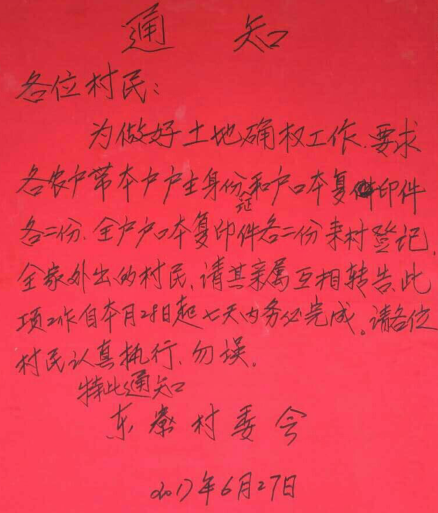 通 知
各位村民：
为做好土地确权工作.要求
各农户带本户户主身份证和户口本复印件
各二份.全户户口本复印件各二份来村登记.
全家外出的村民,请其亲属互相转告.此
项工作自本月28日起七天内务必完成.请各位
村民认真执行,勿误。
特此通知
东寮村委会
2017年6月27日